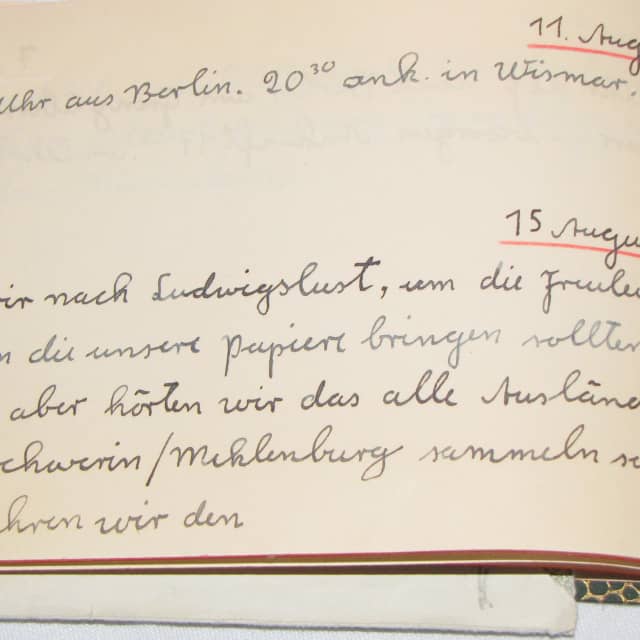 11. Aug
Uhr aus Berlin. 20³⁰ ank. in Wismar.
15 Augu
ir nach Ludwigslust, um die
n die unsere papiere bringen sollten
aber hörten wir das alle Auslän
chwerin/Meklenburg sammeln s
hren wir den